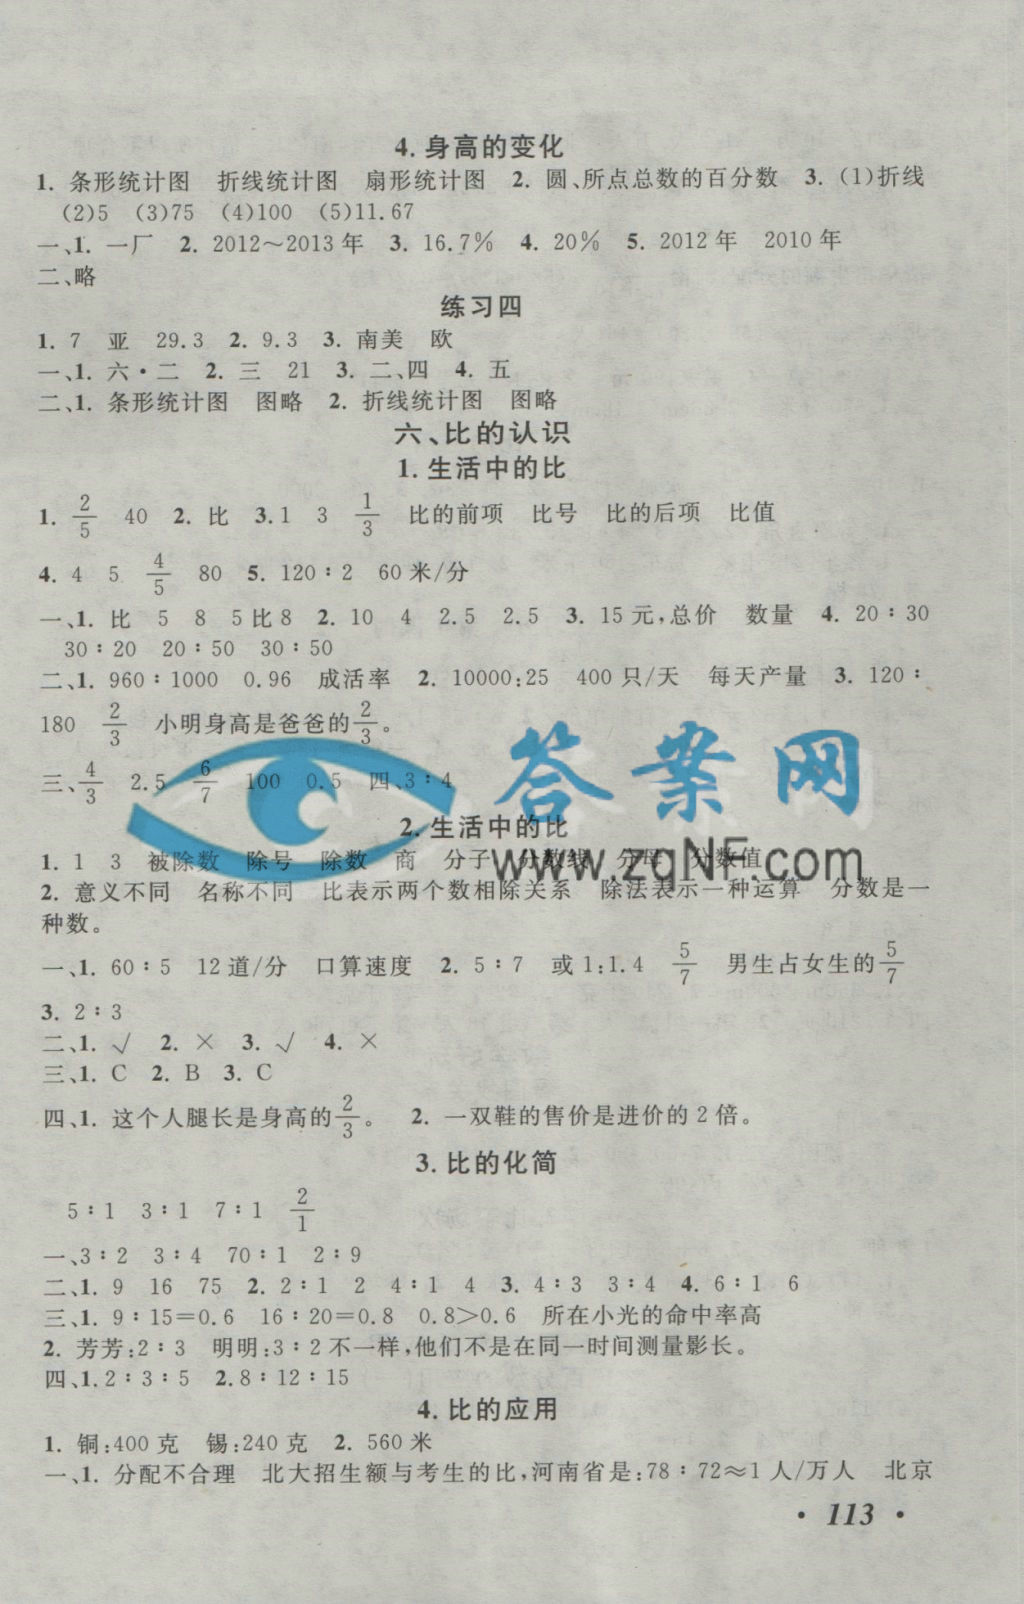 4. 身高的变化
1. 条形统计图 折线统计图 扇形统计图 2. 圆、所点总数的百分数 3. (1)折线
(2)5 (3)75 (4)100 (5)11.67
一、1. 一厂 2. 2012～2013年 3. 16.7% 4. 20% 5. 2012年 2010年
二、略
练习四
1. 7 亚 29.3 2. 9.3 3. 南美 欧
一、1. 六·二 2. 三 21 3. 二、四 4. 五
二、1. 条形统计图 图略 2. 折线统计图 图略
六、比的认识
1. 生活中的比
1. 2/5 40 2. 比 3.1 3 1/3 比的前项 比号 比的后项 比值
4. 4 5 4/5 80 5. 120∶2 60米/分
一、1. 比 5 8 5比8 2. 10 4 2.5 2.5 3. 15元,总价 数量 4. 20∶30
30∶20 20∶50 30∶50
二、1. 960∶1000 0.96 成活率 2. 10000:25 400只/天 每天产量 3. 120∶
180 2/3 小明身高是爸爸的2/3。
三、4/3 2.5 6/7 100 0.5 四、3∶4
答案网
2. 生活中的比
www.zqNF.com
1. 1 3 被除数 除号 除数 商 分子 分数线 分母 分数值
2. 意义不同 名称不同 比表示两个数相除关系 除法表示一种运算 分数是一
种数。
一、1. 60∶5 12道/分 口算速度 2. 5∶7 或1:1.4 5/7 男生占女生的5/7
3. 2∶3
二、1. √ 2. × 3. √ 4. ×
三、1. C 2. B 3. C
四、1. 这个人腿长是身高的2/3。 2. 一双鞋的售价是进价的2倍。
3. 比的化简
5∶1 3∶1 7∶1 2/1
一、3∶2 3∶4 70∶1 2∶9
二、1. 9 16 75 2. 2∶1 2 4∶1 4 3. 4∶3 3∶4 4. 6∶1 6
三、1. 9∶15=0.6 16∶20=0.8 0.8>0.6 所在小光的命中率高
2. 芳芳:2∶3 明明:3∶2不一样,他们不是在同一时间测量影长。
四、1.2∶3∶5 2.8∶12∶15
4. 比的应用
1. 铜:400克 锡:240克 2. 560米
一、1. 分配不合理 北大招生额与考生的比,河南省是:78∶72≈1人/万人 北京
· 113 ·